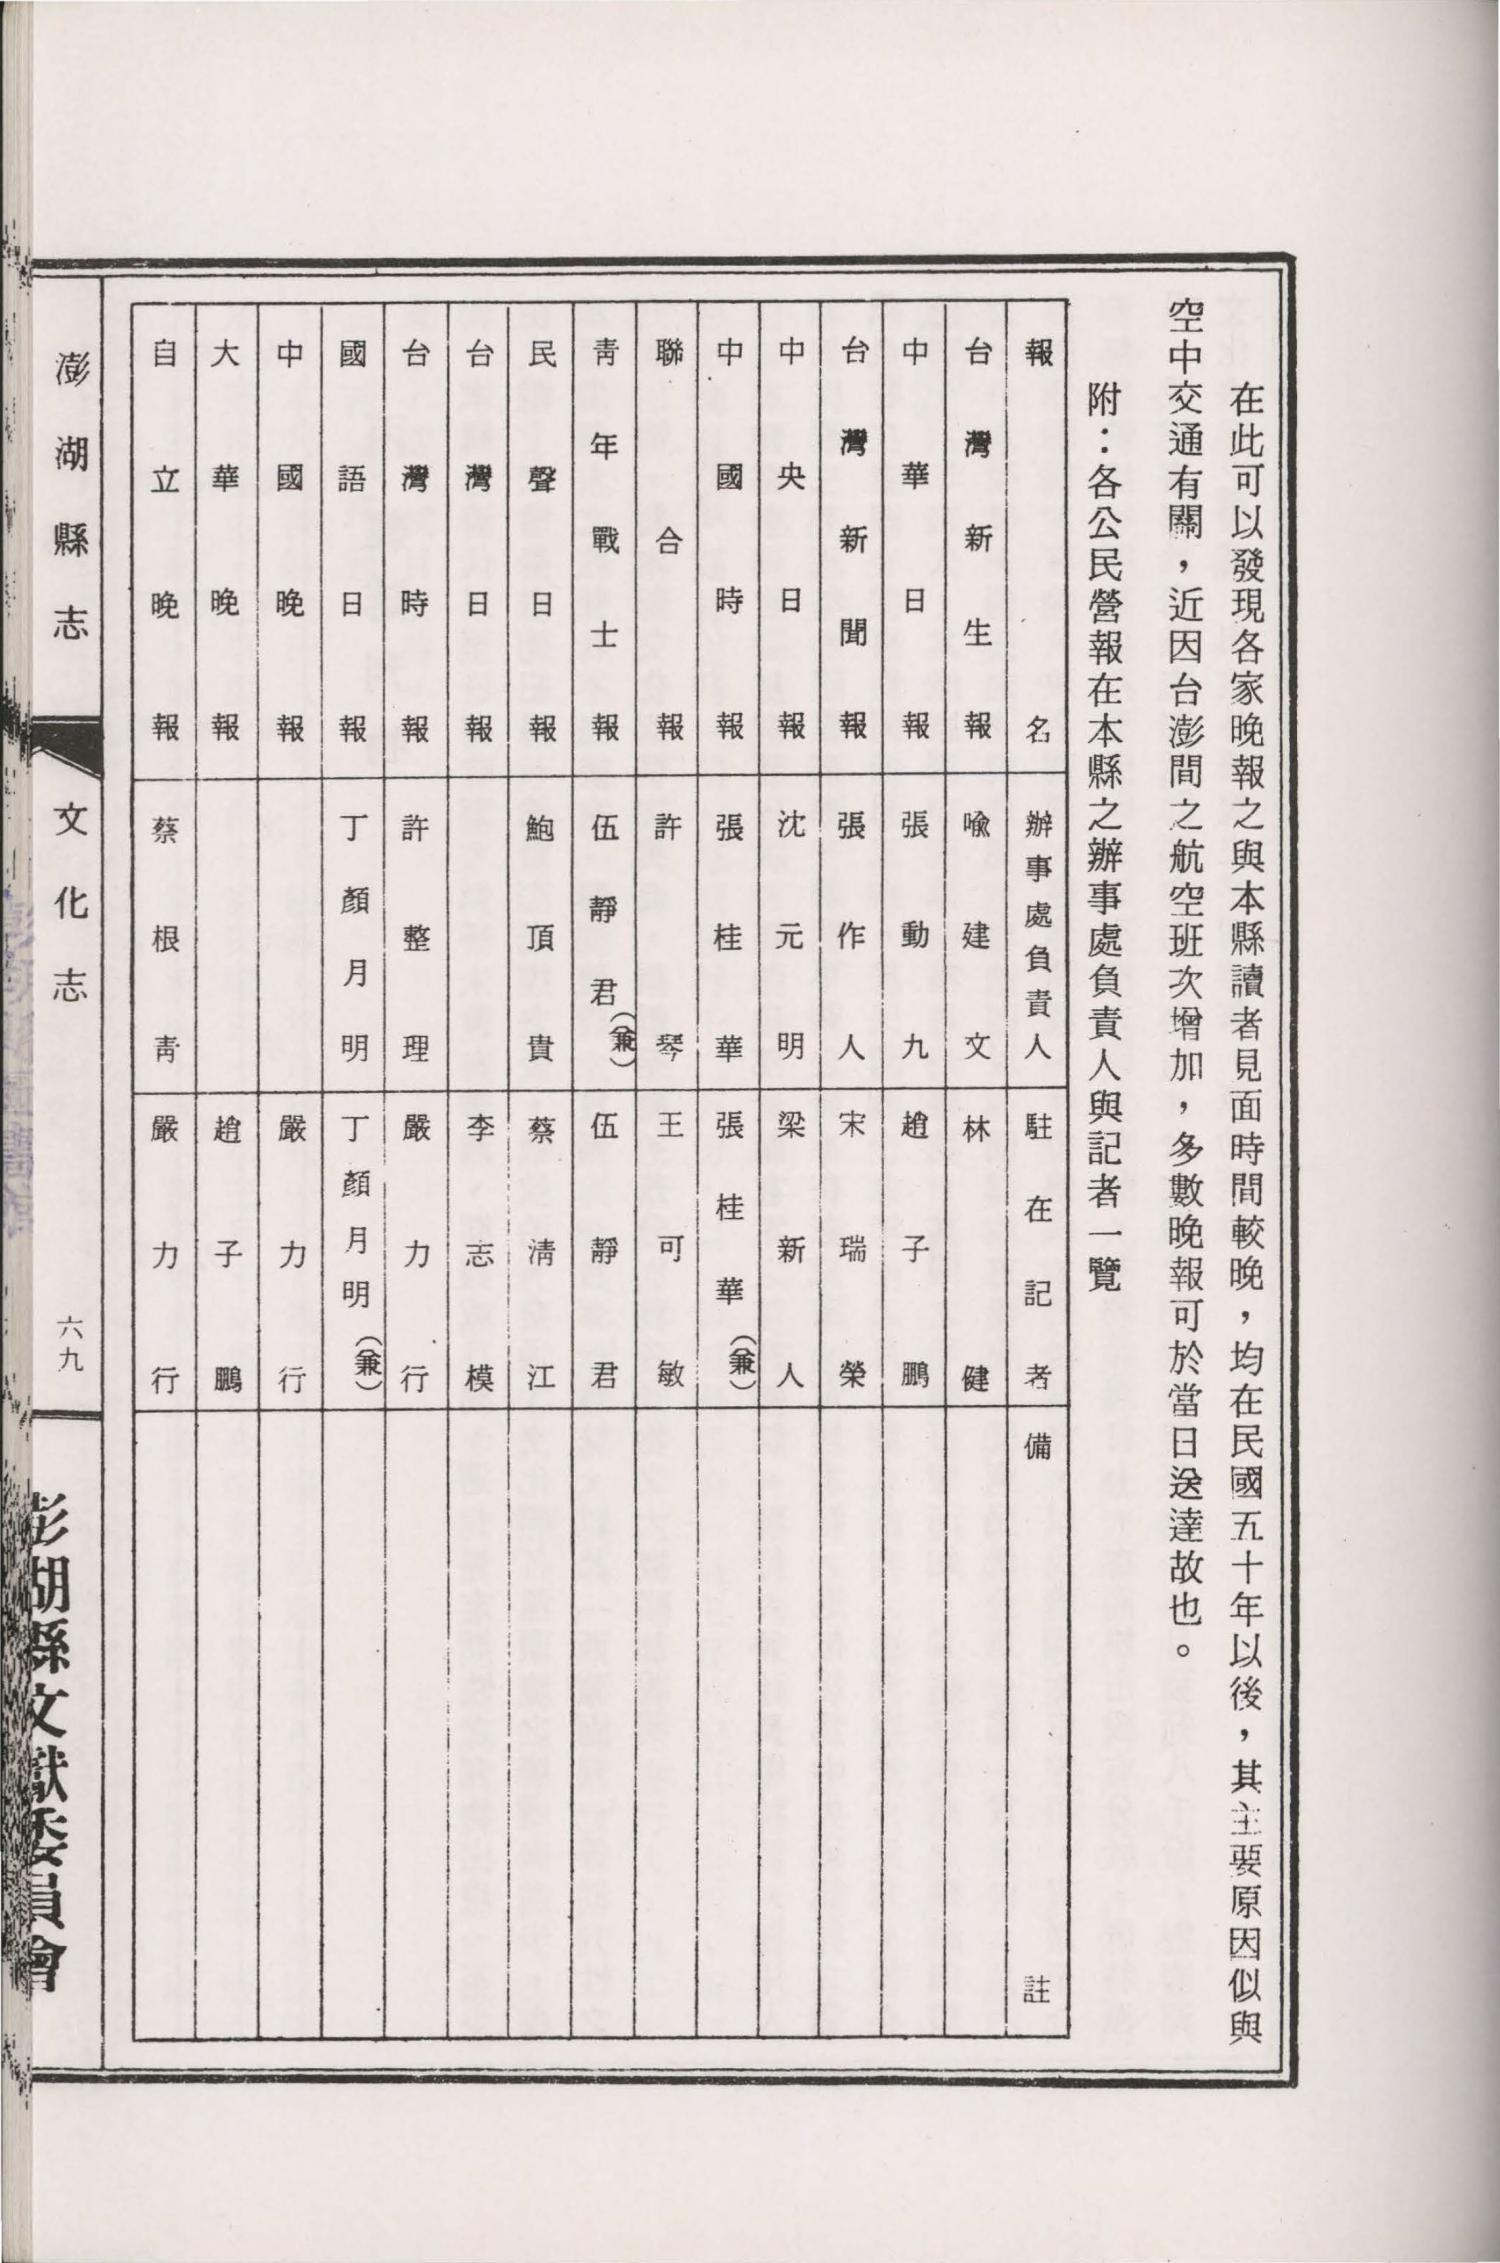 在此可以發現各家晚報之與本縣讀者見面時間較晚，均在民國五十年以後，其主要原因似與
空中交通有關，近因台澎間之航空班次增加，多數晚報可於當日送達故也。
附：各公民營報在本縣之辦事處負責人與記者一覽
報名 辦事處負責人 駐在記者 備註
台灣新生報 喩建文 林健
中華日報 張動九 趙子鵬
台灣新聞報 張作人 宋瑞榮
中央日報 沈元明 梁新人
中國時報 張桂華 張桂華（兼）
聯合報 許琴 王可敏
靑年戰士報 伍靜君（兼） 伍靜君
民聲日報 鮑頂貴 蔡淸江
台灣日報 李志模
台灣時報 許整理 嚴力行
國語日報 丁顏月明 丁顏月明（兼）
中國晚報 嚴力行
大華晚報 趙子鵬
自立晚報 蔡根靑 嚴力行
澎湖縣志 文化志 六九 澎湖縣文獻委員會